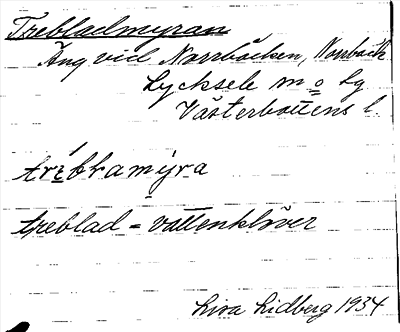 Trebladmyran
Äng vid Norrbäcken, Norrbäck
Lycksele m o lg
Västerbottens l.
tribbramýra
treblad = vattenklöver
Lisa Lidberg 1934